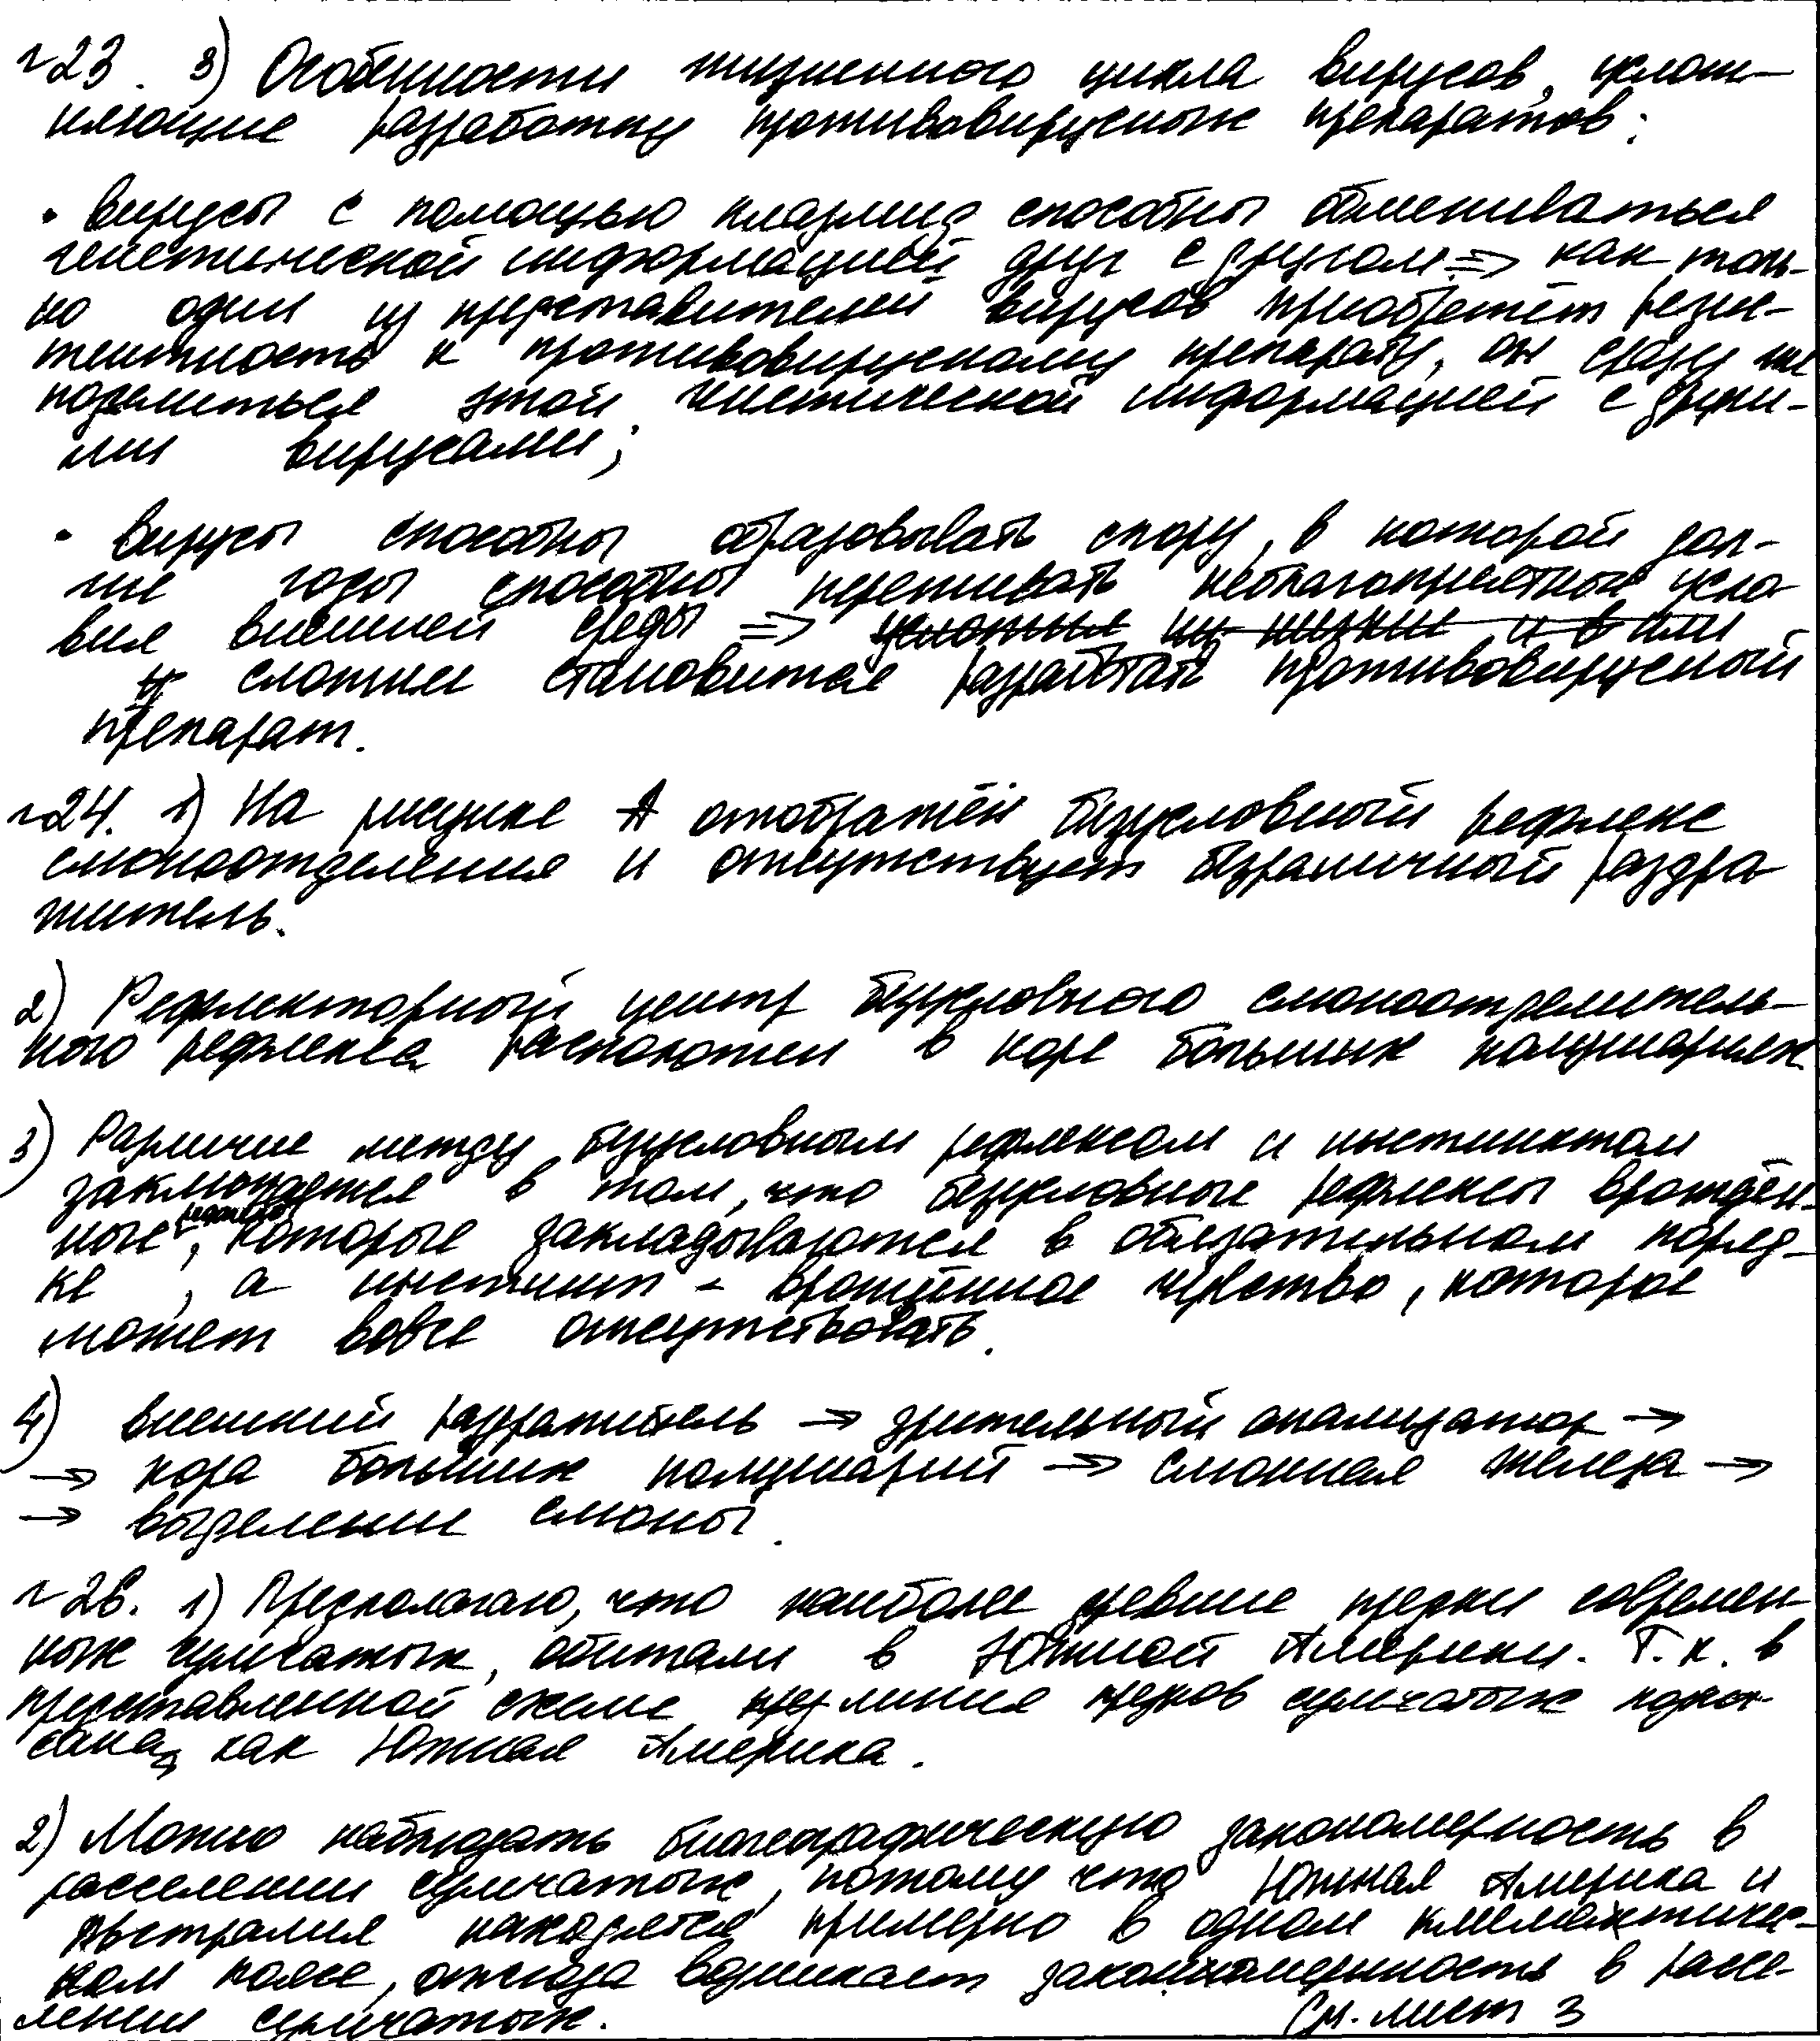 №23. 3) Особенности жизненного цикла вирусов, услож-
няющие разработку противовирусных препаратов:
• вирусы с помощью плазмид способны обмениваться
генетической информацией друг с другом => как толь-
ко один из представителей вирусов приобретёт резис-
тентность к противовирусному препарату, он сразу же
поделиться этой генетической информацией с други-
ми вирусами;
• вирусы способны образовывать спору, в которой дол-
гие годы способны переживать неблагоприятные усло-
вия внешней среды =>
сложнее становится разработать противовирусный
препарат.
№24. 1) На рисунке А отображён безусловный рефлекс
слюноотделения и отсутствует безразличный раздра
житель.
2) Рефлекторный центр безусловного слюноотделитель-
ного рефлекса расположен в коре больших полушариях
3) Различие между безусловным рефлексом и инстинктом
заключается в том, что безусловные рефлексы врождён-
ные реакции, которые закладываются в обязательном поряд-
ке, а инстинкт - врождённое чувство, которое
может вовсе отсутствовать.
4) внешний раздражитель → зрительный анализатор →
→ кора больших полушарий → слюнная железа →
→ выделение слюны.
№26. 1) Предполагаю, что наиболее древние предки современ
ных сумчатых, обитали в Южной Америки. Т.к. в
представленной схеме линия предков сумчатых подпи-
сана, как Южная Америка.
2) Можно наблюдать биогеографическую закономерность в
расселении сумчатых, потому что Южная Америка и
Австралия находятся примерно в одном климатичес-
ком поясе, отсюда возникает закономерность в рассе-
лении сумчатых.
См. лист 3